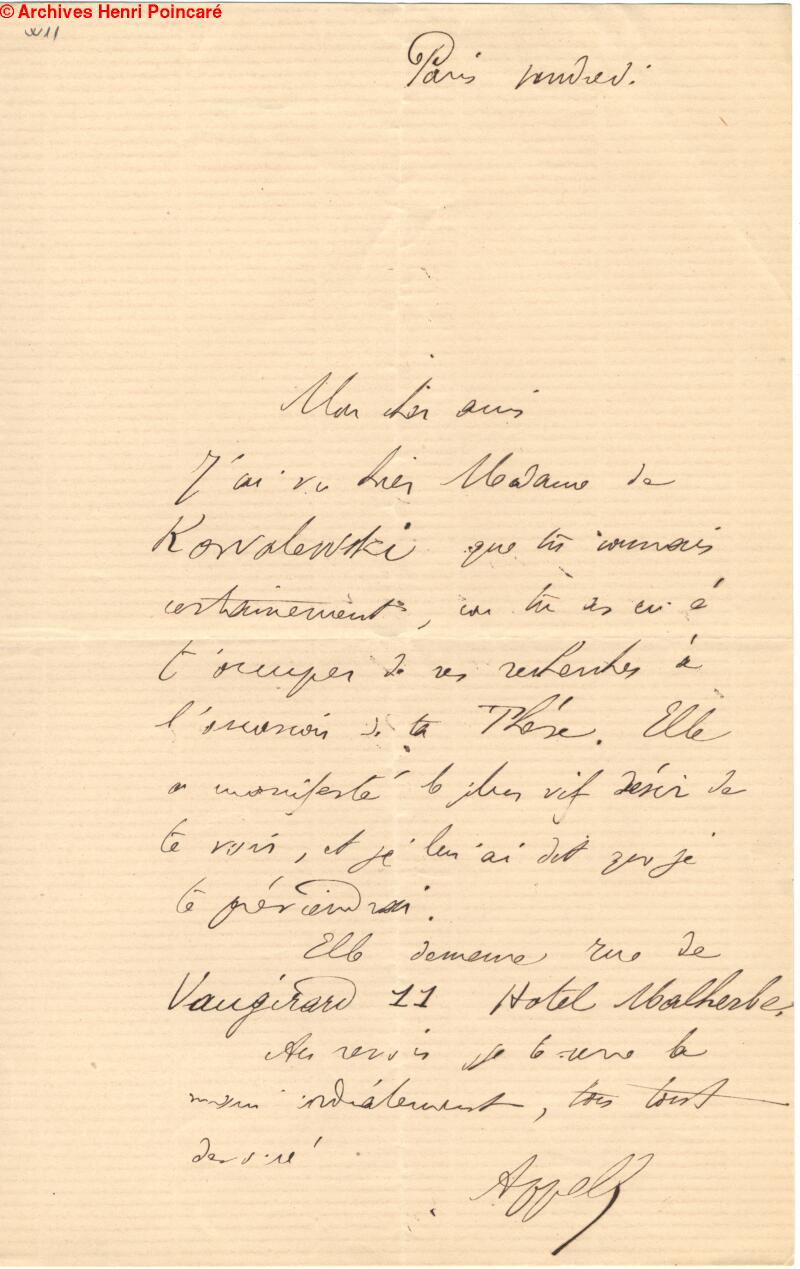 © Archives Henri Poincaré
Paris vendredi
Mon cher ami
J'ai vu hier Madame de
Kowalewski que tu connais
certainement, car tu as eu à
t'occuper de ses recherches à
l'occasion de ta Thèse. Elle
a manifesté le plus vif désir de
te voir, et je lui ai dit que je
te préviendrai.
Elle demeure rue de
Vaugirard 11 Hotel Malherbe.
Au revoir je te serre la
main cordialement, ton tout
dévoué
Appell